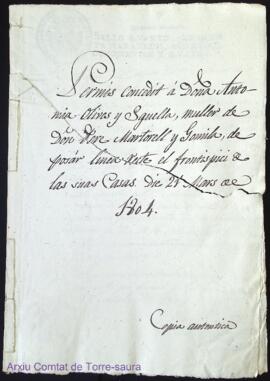 Permis concedit á Doña Anto-
nia Olives y Squella, muller de
Don Pere Martorell y Gomila, de
posár linea el frontispici de
las suas Casas. die 21 Mars de
1804.
Copia autentica
Arxiu Comtat de Torre-saura